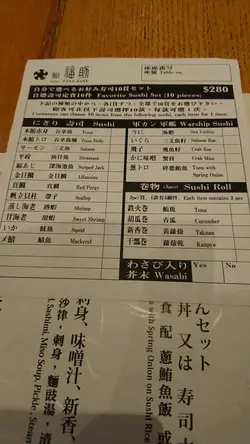 鮨 福助
座席番号
座號 Table no.
自分で選べるお好み寿司10貫セット
自選壽司定食10件 Favorite Sushi Set (10 pieces)
$280
下記の種類の中から、各1貫ずつ、全部で10貫お選び下さい。
顧客可在以下壽司選擇10款，每款可選1次。
Customers can choose 10 items from the following sushi, each item for 1 time.
にぎり 壽司 Sushi
本鮪赤身 吞拿魚 Tuna
本鮪トロ 吞拿魚腩 Tuna Belly
サーモン 三文魚 Salmon
平政 油甘魚
縞あじ 深海池魚 Striped Jack
金目鯛 金目鯛 Alfonsino
真鯛 真鯛 Red Porgy
帆立貝柱 帶子 Scallop
蒸し海老 熟蝦 Shrimp
甘海老 甜蝦 Sweet Shrimp
いか 魷魚 Squid
〆鯖 鯖魚 Mackerel
軍カン 軍艦 Warship Sushi
うに 海膽 Sea Urchin
いくら 三文魚籽 Salmon Roe
飛子 飛魚籽 Crab Roe
かに味噌 蟹膏 Crab Miso
葱トロ 碎葱鮪魚 Tuna with
Spring Onion
巻物 (3pcs) Sushi Roll
3pc/貫，1款有3個 Each item contains 3 pcs
鉄火巻 鮪魚 Tuna
胡瓜巻 青瓜 Cucumber
新香巻 黃蘿蔔 Takuan
干瓢巻 葫蘆乾 Kanpyo
わさび入り
芥末 Wasabi
Yes
No
んセット
丼 又は 寿司
食 配 蔥鮪魚飯 或
with Spring Onion on Sushi Rice
刺身、味噌汁、新香、
沙律，刺身，麵豉湯，漬
Sashimi, Miso Soup, Pickle, Steam